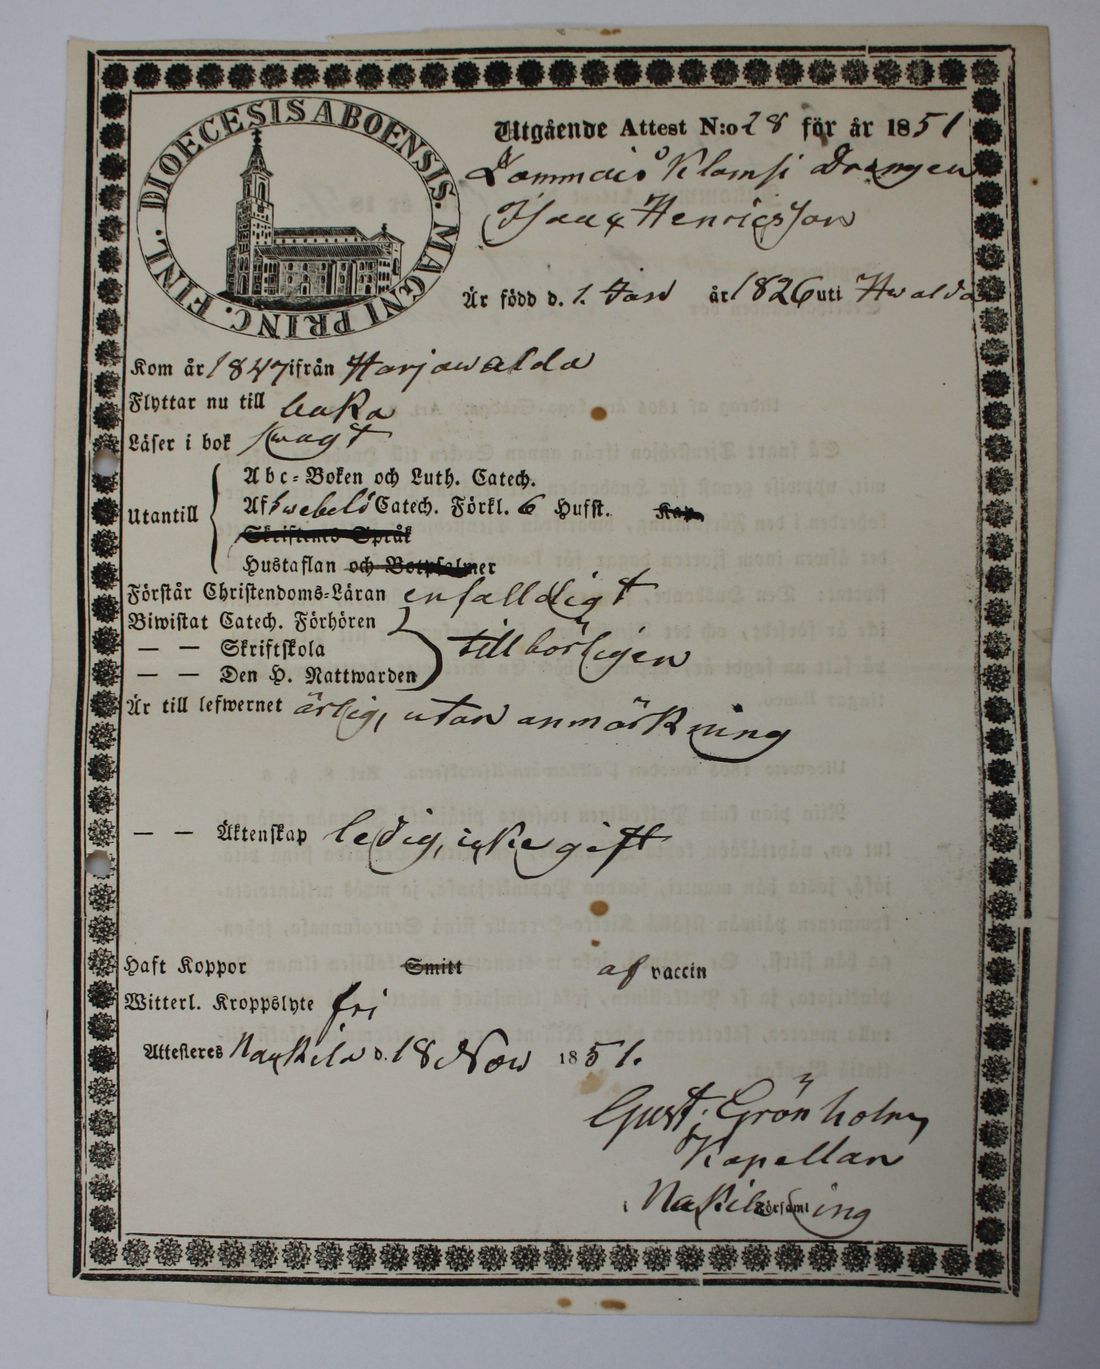 DIOECESIS ABOENSIS. MAGNI PRINC. FINL.
Utgående Attest N:o 28 för år 1851
Lammais Klomsi Drengen
Isaak Henricsson
Är född d. 1. Jan år 1826 uti Hwalda
Kom år 1847 ifrån Harjawalda
Flyttar nu till baka
Läser i bok swagt
Utantill
Abc-Boken och Luth. Catech.
Af Swebelö Catech. Förkl. 6 Hufst. Kap.
Skriftens Språk
Hustaflan och Botpsalmer
Förstår Christendoms-Läran enfalldigt
Biwistat Catech. Förhören
— — Skriftskola
tillbörligen
— — Den H. Nattwarden
Är till lefwernet ärlig, utan anmärkning
— — Äktenskap ledig, icke gift
Haft Koppor Smitt af vaccin
Witterl. Kroppslyte fri
Attesteras Nakkila d. 18 Nov 1851.
Gust. Grönholm
Kapellan
i Nakkila Församling